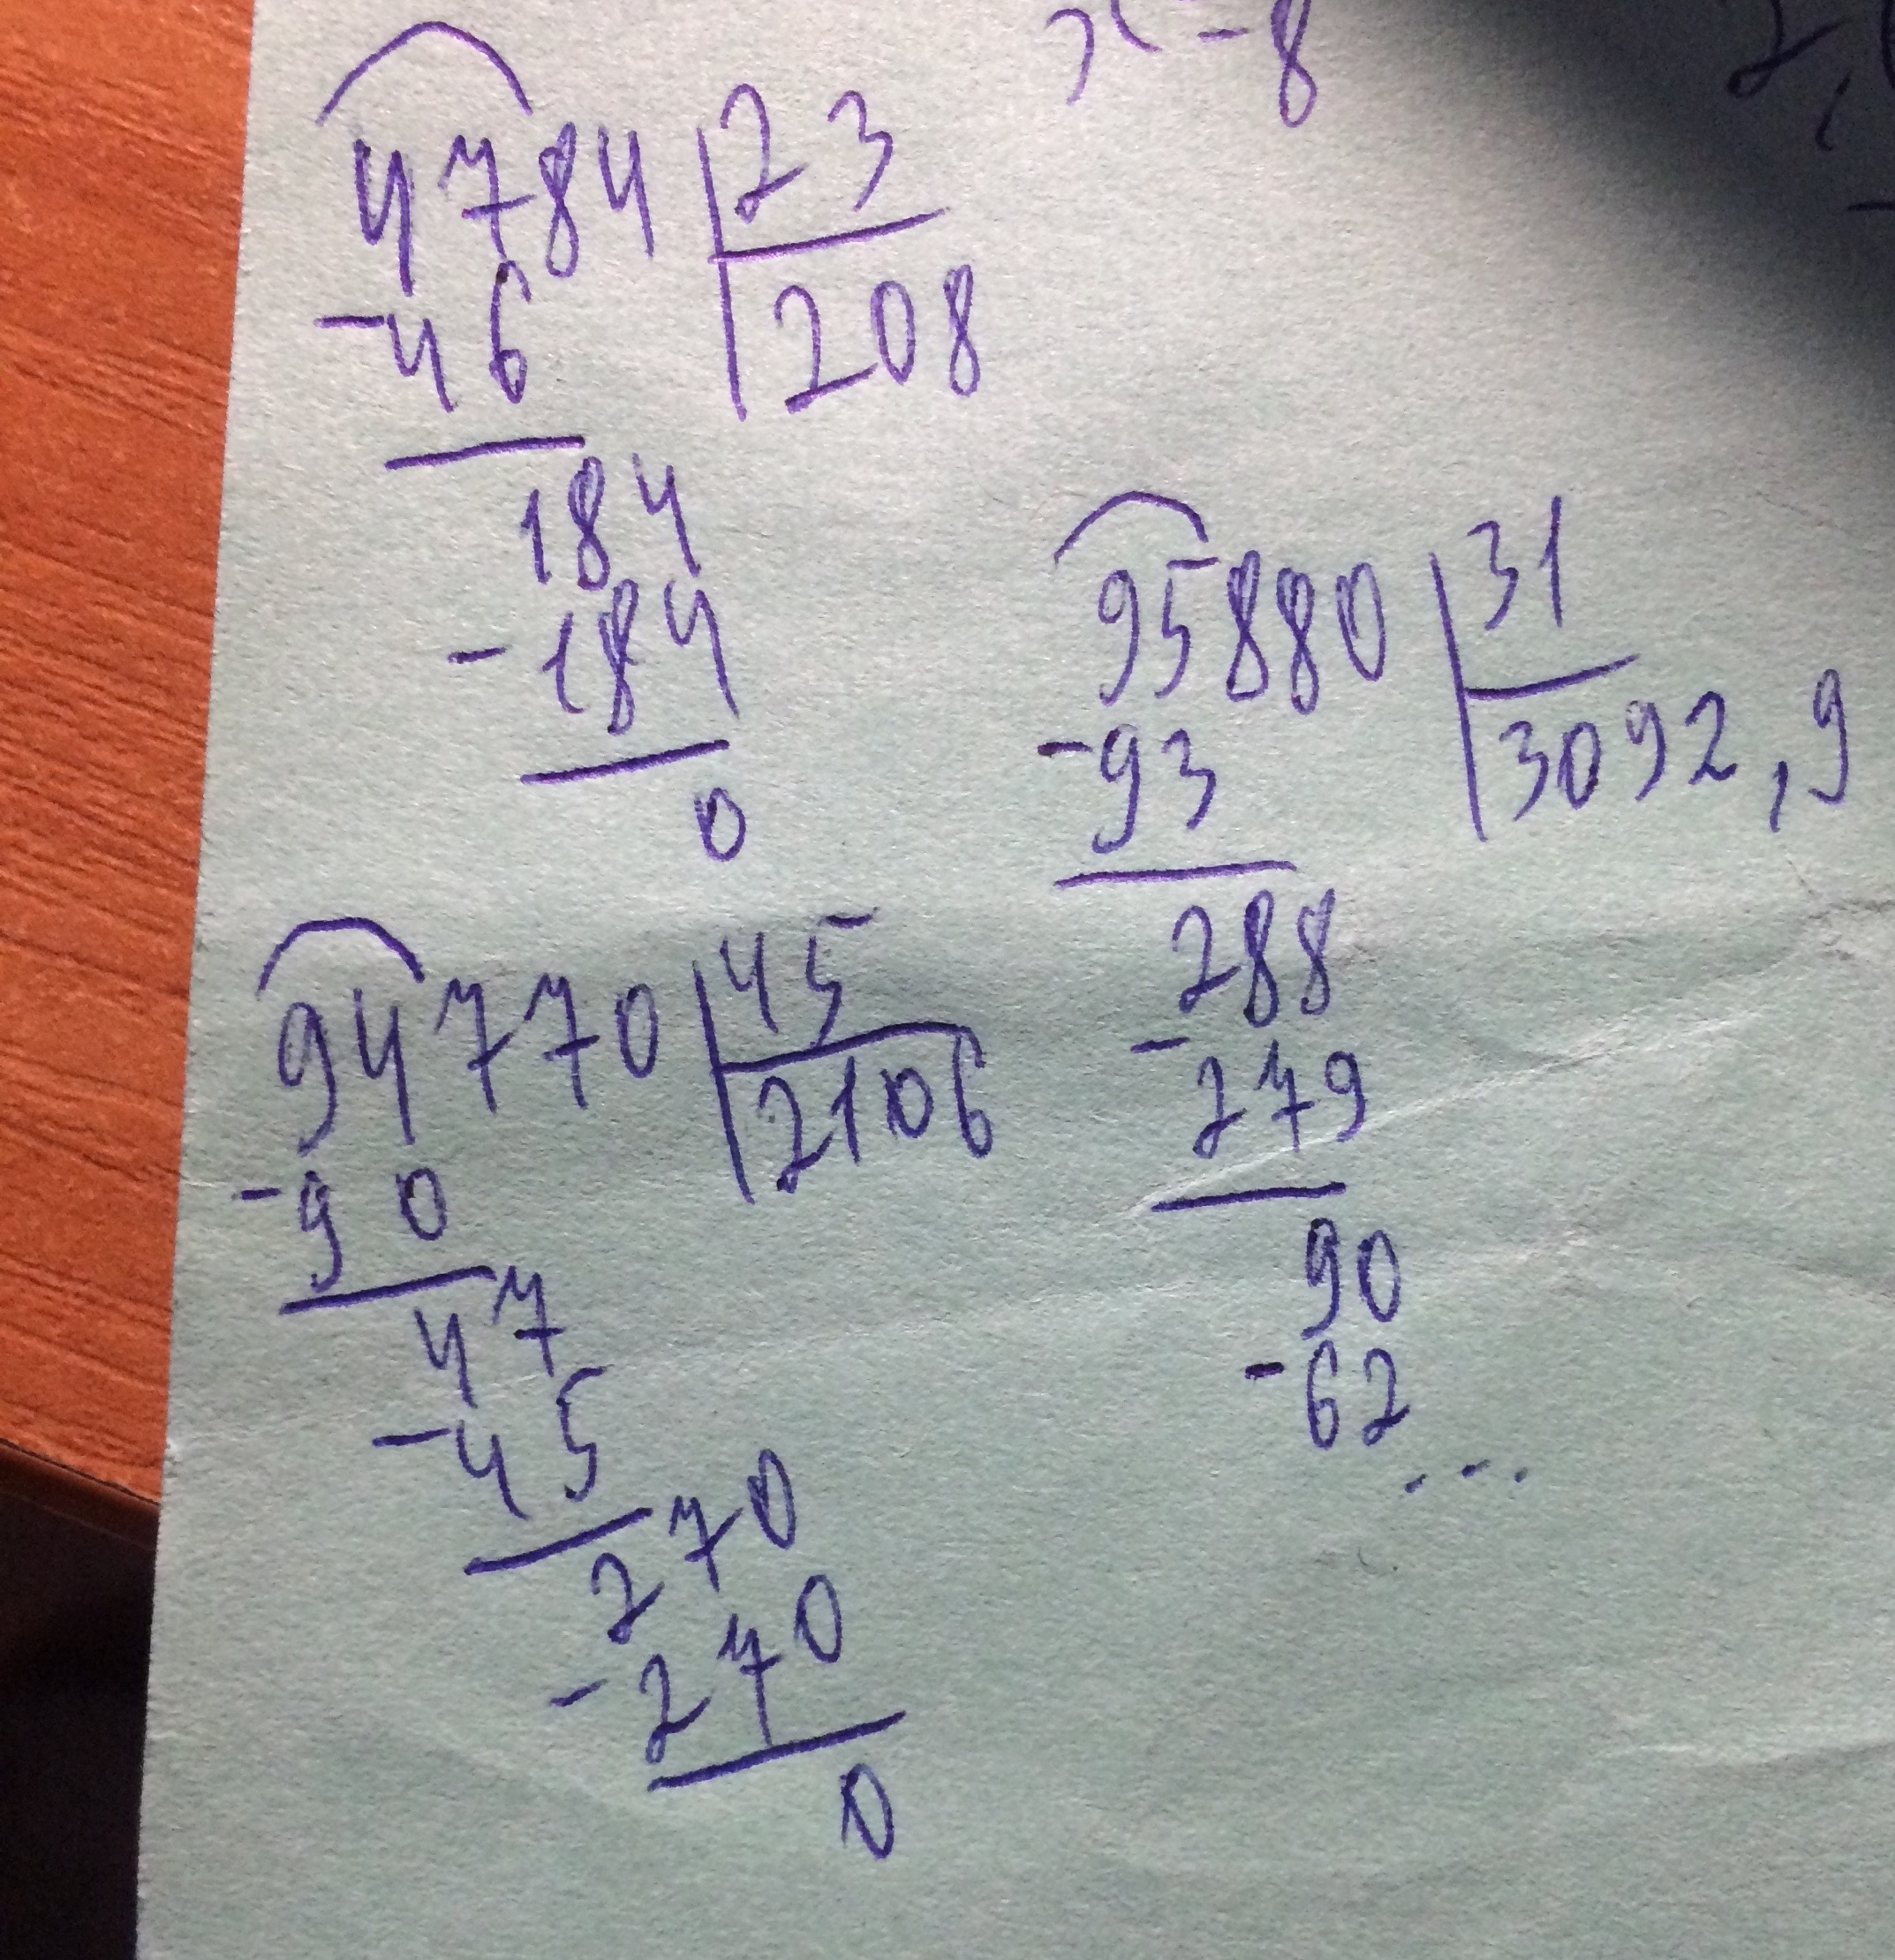 x = 8
4784 23
-46 208
184
-184
0
95880 31
-93 3092,9
288
-279
90
-62
...
94770 45
-90 2106
47
-45
270
-270
0